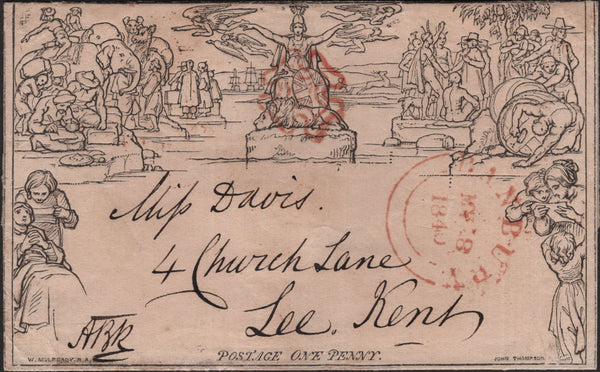 Miſs Davis.
4 Church Lane
Lee. Kent
MY 8
1840
W. MULREADY. R.A.
POSTAGE ONE PENNY.
JOHN THOMPSON